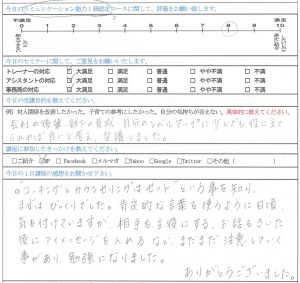 今日のコミュニケーション能力1級認定コースに関して、評価をお願い致します。
不満足
満足
0 1 2 3 4 5 6 7 8 9 10
今日のセミナーに関して、ご意見をお願いいたします。
トレーナーの対応 ☑ 大満足 □ 満足 □ 普通 □ やや不満 □ 不満
アシスタントの対応 ☑ 大満足 □ 満足 □ 普通 □ やや不満 □ 不満
事務局の対応 ☑ 大満足 □ 満足 □ 普通 □ やや不満 □ 不満
今日の受講目的を教えてください。
例)対人関係を改善したかった。子育ての参考にしたかった。自分の気持ちが言えない。具体的に教えてください。
会社の後輩、部下の育成、自分のコーチングに少しでも役に立て
られれば良いと考え、受講しました。
講座に参加したきっかけを教えてください。
□ご紹介 HP □Facebook □メルマガ □Yahoo □Google □Twitter □その他( )
今日の1日講座の感想をお聞かせ下さい。
"コーチングとカウンセリングはセット"という事を知り、
まずはびっくりでした。肯定的な言葉を使うように日頃、
気を付けていますが、相手を主役にする、お話をきいた
後にアイメッセージを入れるなど、まだまだ注意していく
事があり、勉強になりました。
ありがとうございました。